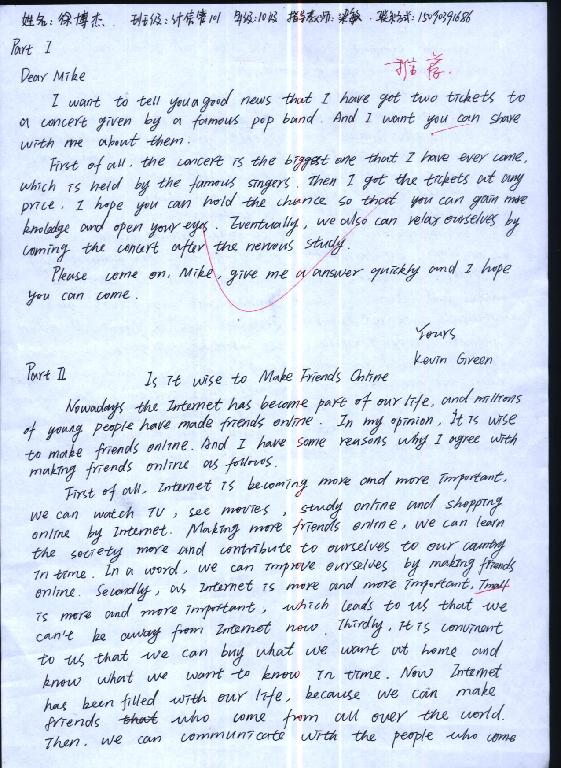 姓名: 徐博杰 班级: 计信管101 年级: 10级 指导教师: 梁敏 联系方式: 15090391686
Part I
推荐.
Dear Mike
I want to tell you a good news that I have got two tickets to
a concert given by a famous pop band. And I want you can share
with me about them.
First of all. the concert is the biggest one that I have ever come,
which is held by the famous singers. Then I got the tickets at any
price. I hope you can hold the chance so that you can gain more
knolodge and open your eyes. Eventually, we also can relax ourselves by
coming the concert after the nervous study.
Please come on, Mike, give me a answer quickly and I hope
you can come.
Yours
Kevin Green
Part II
Is it wise to Make Friends Online
Nowadays the Internet has become part of our life, and millions
of young people have made friends online. In my opinion, It is wise
to make friends online. And I have some reasons why I agree with
making friends online as follows.
First of all, Internet is becoming more and more important,
we can watch TV, see movies, study online and shopping
online by Internet. Making more friends online, we can learn
the society more and contribute to ourselves to our country
in time. In a word, we can improve ourselves by making friends
online. Secondly, as Internet is more and more important,
is more and more important, which leads to us that we
can't be away from Internet now. Thirdly, It is convinent
to us that we can buy what we want at home and
know what we want to know in time. Now Internet
has been filled with our life, because we can make
friends that who come from all over the world.
Then. we can communicate with the people who come